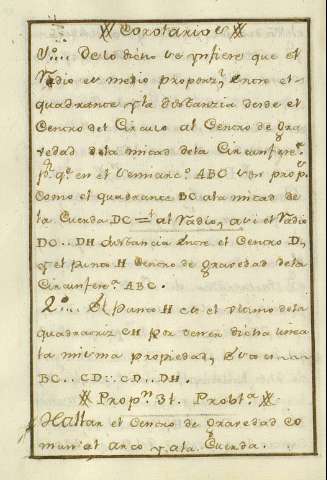 Corolarios
1º... De lo dicho se ynfiere que el
Radio es medio proporz.l entre el
quadrante y la distanzia desde el
Centro del Circulo al Centro de gra
vedad dela mitad dela Circunfere.a
p.r q.e en el semicirc.o ABC son prop.s
Como el quadrante BC ala mitad de
la Cuerda DC = al Radio, asi el Radio
DC.. DH distancia entre el Centro D,
y el punto H Centro de gravedad dela
Circunfer.a ABC.
2º... El punto H es el ultimo dela
quadratriz CH por tener dicha linea
la misma propiedad,
BC.. CD:. CD.. DH.
Prop.n 31. Probl.a
Hallar el Centro de gravedad co
mun al arco y ala Cuerda.